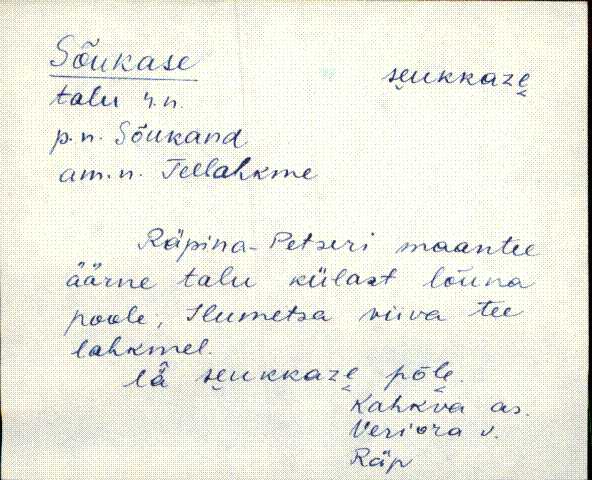 Sõukase seukkaze̮
talu r.n.
p.n. Sõukand
am.n. Teelahkme
Räpina-Petseri maantee
äärne talu külast lõuna
poole, Ilumetsa viiva tee
lahkmel.
lä̂ se̮ukkaze̮ põle̮.
Kahkva as.
Veriora v.
Räp